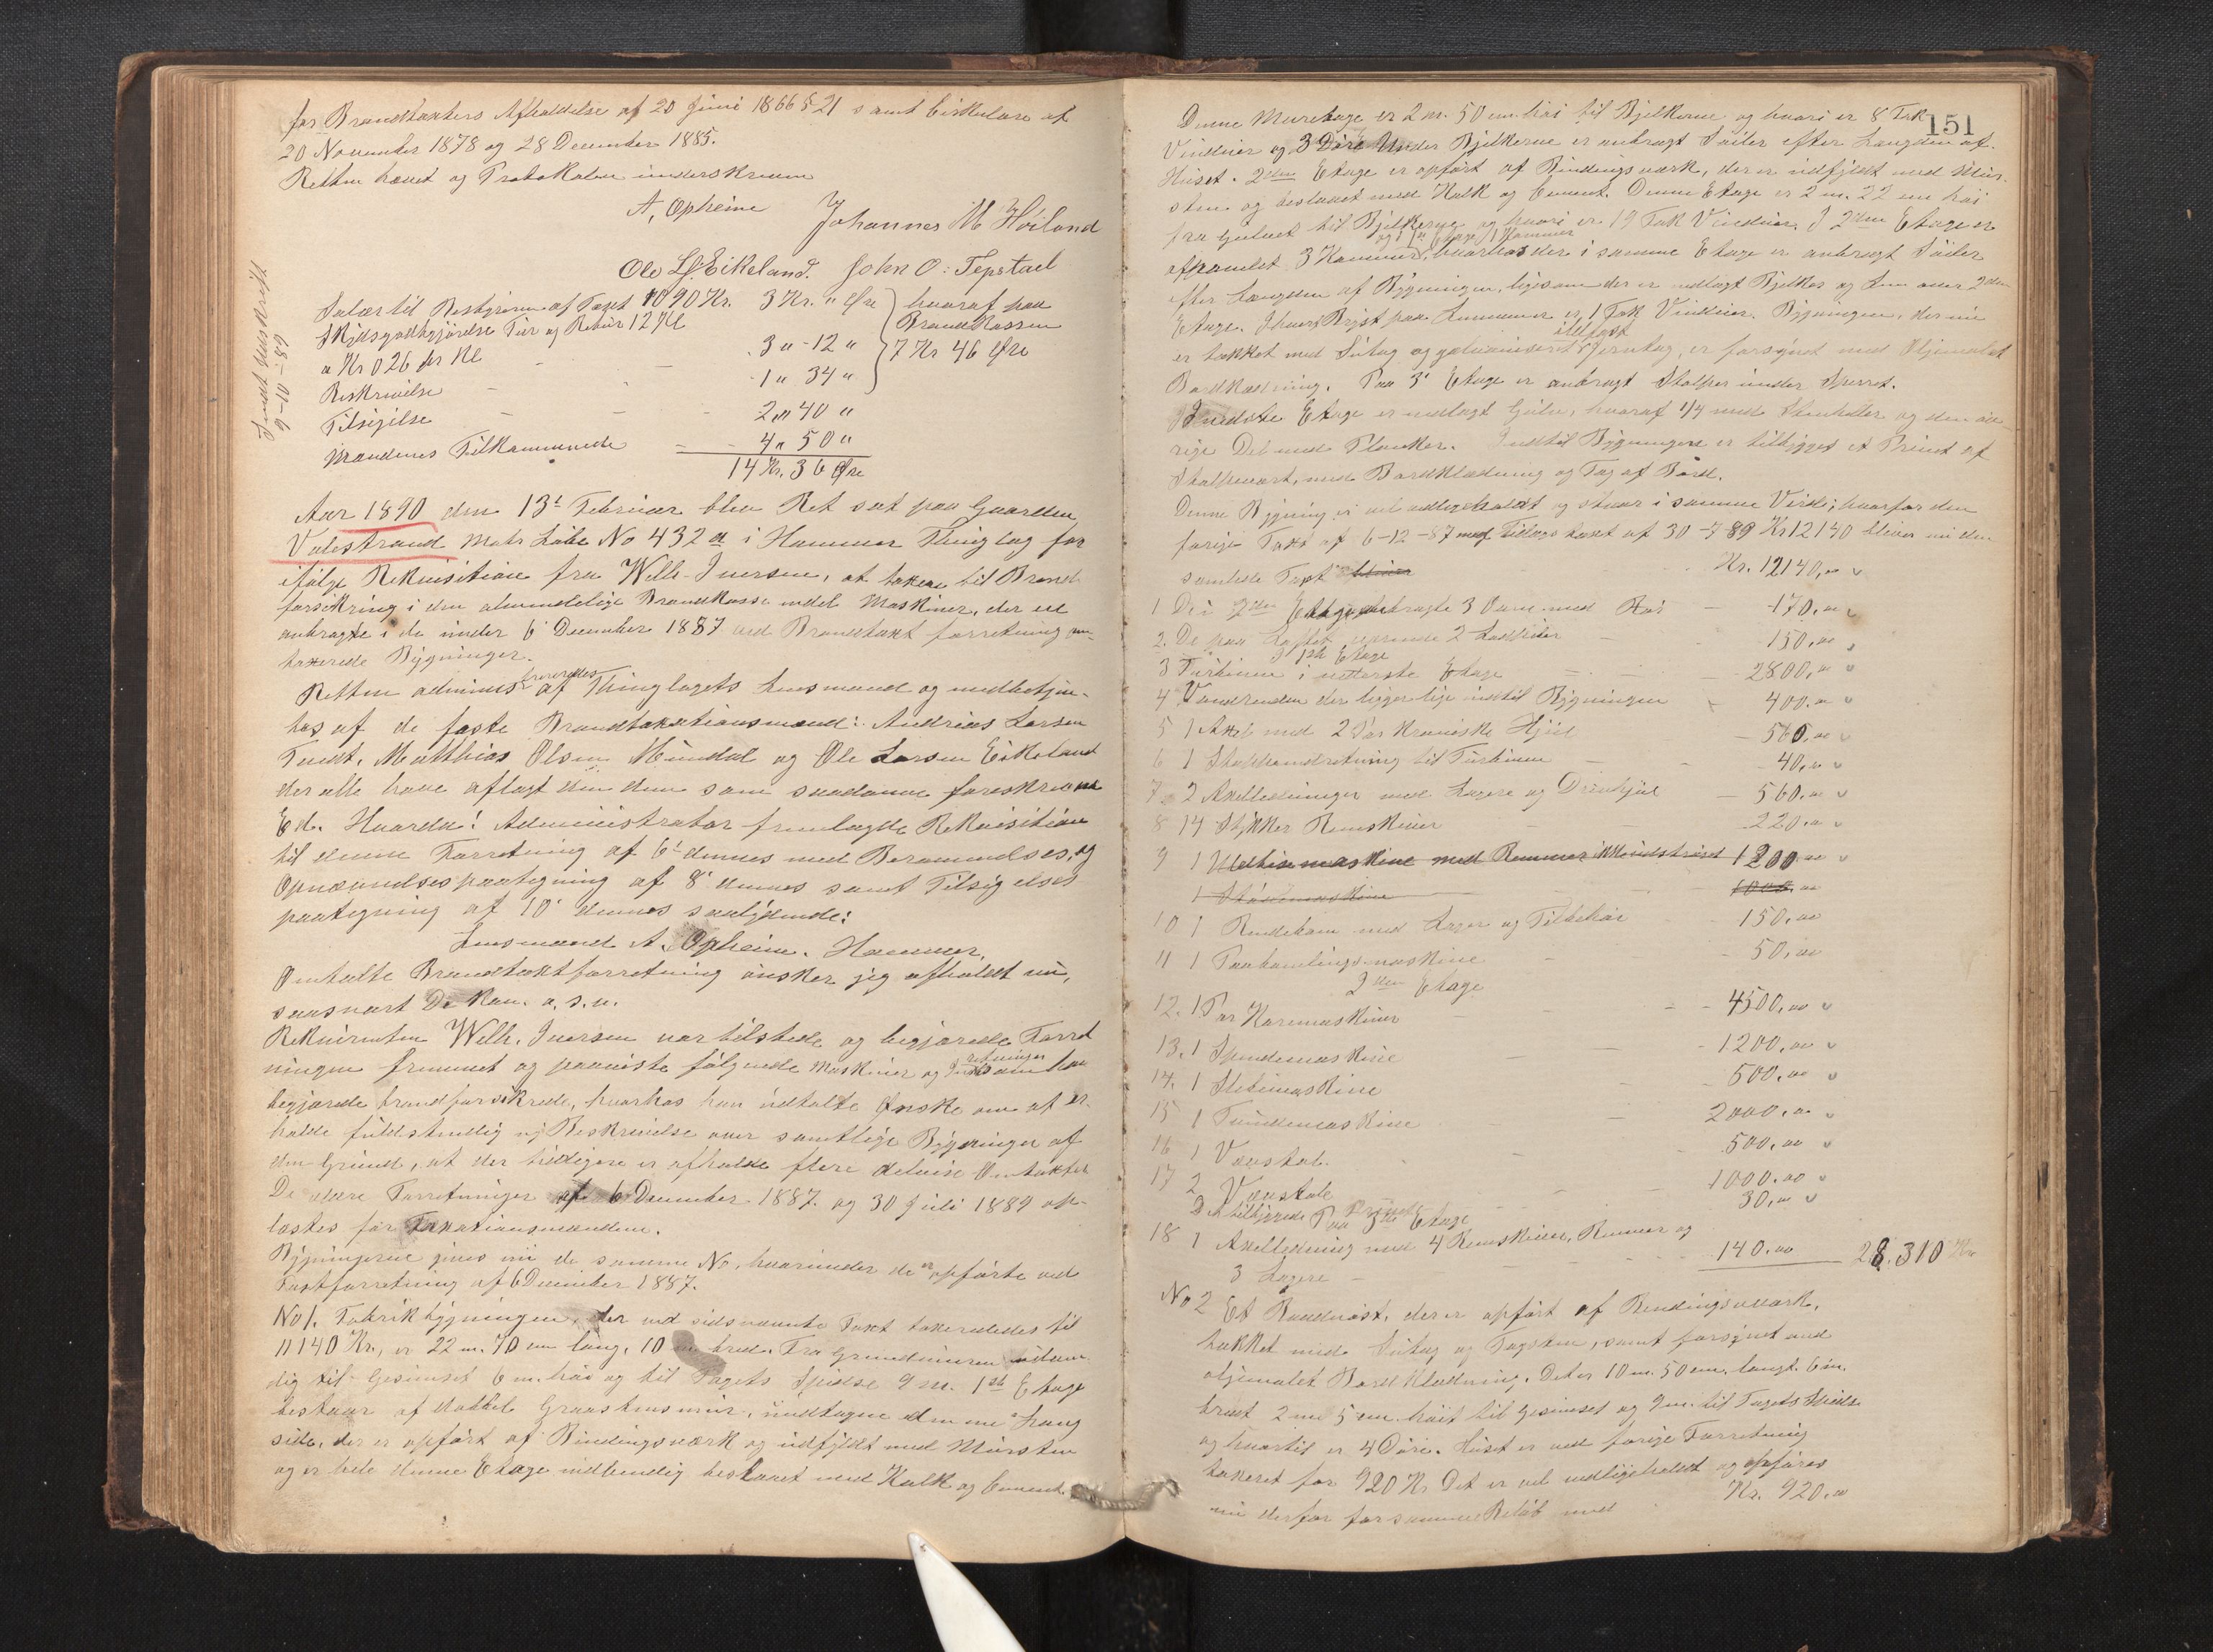 for Brandtaxters Afholdelse af 20 Juni 1866 § 21 samt Cirkulare af
20 November 1878 og 28 December 1885.
Retten hævet og Protokolen underskreven
A, Opheim Johannes M Høiland
Ole L. Eikeland. John O: Tepstad
Indt. Genskrift
9-10-89
Salær til Bestyreren af Taxt 1090 Kr. 3 Kr. " Øre } hvoraf paa
Skydsgodtgjørelse Tur og Retur 12 Kl BrandKassen
a Kr 0 26 pr Kl 3 " - 12 " 7 Kr 46 Øre
Beskrivelse 1 " 34 "
Tilsigelse 2 " 40 "
Mændenes Tilkommende 4 " 50 "
14 Kr. 36 Øre
Aar 1890 den 13de Februar blev Ret sat paa Gaarden
Valestrand Matr Løbe No 432 a i Hammer Thinglag for
ifølge Rekvisition fra Wilh. Iversen, at taxere til Brand
forsikring i den almindelige Brandkasse endel Maskiner, der ere
anbragte i de under 6 December 1887 ved Brandtaxt forretning om-
taxerede Bygninger.
Retten administreredes af Thinglagets Lensmand og medbetjen-
tes af de faste Brandtaxationsmænd: Andreas Larsen
Tuedt, Matthias Olsen Mundal og Ole Larsen Eikeland
der alle have aflagt den dem som saadanne foreskrevne
Ed. Hvorda! Administrator fremlagde Rekvisition
til denne Forretning af 6te dennes med Berammelses, og
Opnævnelsespaategning af 8de dennes samt Tilsigelses
paategning af 10de dennes saalydende:
Lensmand A. Opheim. Hammer.
Omtalte Brandtaxtforretning ønsker jeg afholdt nu,
saasnart De kan. o. s. v.
Rekvirenten Wilh. Iversen var tilstede og begjærede Forret
ningen fremmet og paaviste følgende Maskiner og Indretninger som han
begjærede brandforsikrede, hvorhos han udtalte Ønske om at er-
holde fuldstændig ny Beskrivelse over samtlige Bygninger af
den Grund, at der tidligere er afholdt flere delvise Omtaxter
De ældre Forretninger af 6 December 1887. og 30 Juli 1889 op-
læstes for Taxationsmændene.
Bygningerne gives nu de samme No, hvorunder de er opførte ved
Taxtforretning af 6 December 1887.
No 1. Fabrikbygningen, der ved sidsnævnte Taxt taxeredes til
11140 Kr, er 22 m. 70 cm lang, 10 m bred. Fra Grundmuren
dig til Gesimset 6 m. høi og til Tagets Spidse 9 m. 1ste Etage
bestaar af dobbel Graastensmur, undtagen den ene Lang
side, der er opført af Bindingsværk og udfyldt med Mursten
og er hele denne Etage indvendig beslaaet med Kalk og Cement.
151
Denne Muretage er 2 m. 50 cm. høi til Bjelkerne og hvori er 8 Fak
Vinduer og 3 Døre Under Bjelkerne er anbragt Søiler efter Længden af
Huset. 2den Etage er opført af Bindingsværk, der er udfyldt med Mur-
sten og beslaaet med Kalk og Cement. Denne Etage er 2 m. 22 cm høi
fra Gulvet til Bjelkerne og hvori er 19 Fak Vinduer. I 2den Etage er
og i 1ste Etage 1 Kammer
afpanelet 3 Kammer, hvorhos der i samme Etage er anbragt Søiler
efter Længden af Bygningen, ligesom der er indlagt Bjelker og Lem over 2den
Etage. I hvert Bryst paa Lemmen er 1 Fak Vinduer. Bygningen, der nu
ildfast
er tækket med Sutag og galvaniseret Jerntag, er forsynet med Oljemalet
Bordklædning. Paa 3de Etage er anbragt Stolper under Sperret.
I nederste Etage er indlagt Gulv, hvoraf 1/4 med Stenheller og den øv
rige Del med Planker. Indtil Bygningen er tilbygget et Privet af
Stolpevært, med Bordklædning og Tag af Bord.
Denne Bygning er vel vedligeholdt og staar i samme Værdi, hvorfor den
forrige Taxt af 6-12-87 med Tillægstaxt af 30-7 89 Kr 12140 bliver nu den
samlede Taxt bliver Kr. 12140,00 v
1 De i 2den Etage anbragte 3 Ovne med Rør - 170,00 v
2. De paa Loftet 2 150,00 v
I 1ste Etage
3 Turbinen i nederste Etage - 2800,00 v
4 Vandrenden der ligger lige indtil Bygningen - 400,00 v
5 1 Axel med 2 Par Kroniske Hjul - 560,00 v
6 1 til Turbinen - 40,00 v
7. 2 Axelledninger med Lagere og Drivhjul - 560.00 v
8 14 Stykker Remskiver - 220,00 v
9 1 Uldrivemaskine med Remmer 1200.00 v
1 1000.00
10 1 med Lager og Tilbehør 150,00
11 1 50,00
2den Etage
12. 1 Par Karemaskiner - 4500,00 v
13. 1 Spindemaskine - 1200,00 v
14. 1 - 500,00 v
15 1 Tvindemaskine - 2000,00 v
16 1 Vævstol. - 500,00 v
17 2 Vævstole - 1000.00 v
Det tilbyggede Privet 30,00 v
Paa 3die Etage
18 1 Axelledning med 4 Remskiver, Remmer og
3 Lagere - 140.00 28.310 Kr
No 2 Et Vaadnøst, der er opført af Bindingsværk,
tækket med Sutag og Tagsten, samt forsynet med
oljemalet Bordklædning. Det er 10 m. 50 cm. langt. 6 m.
bredt 2 m 5 cm. høit til Gesimset og 9 m. til Tagets Spidse
og hvortil er 4 Døre. Huset er ved forrige Forretning
taxeret for 920 Kr. Det er vel vedligeholdt og opføres
nu derfor for samme Beløb med Kr. 920,00